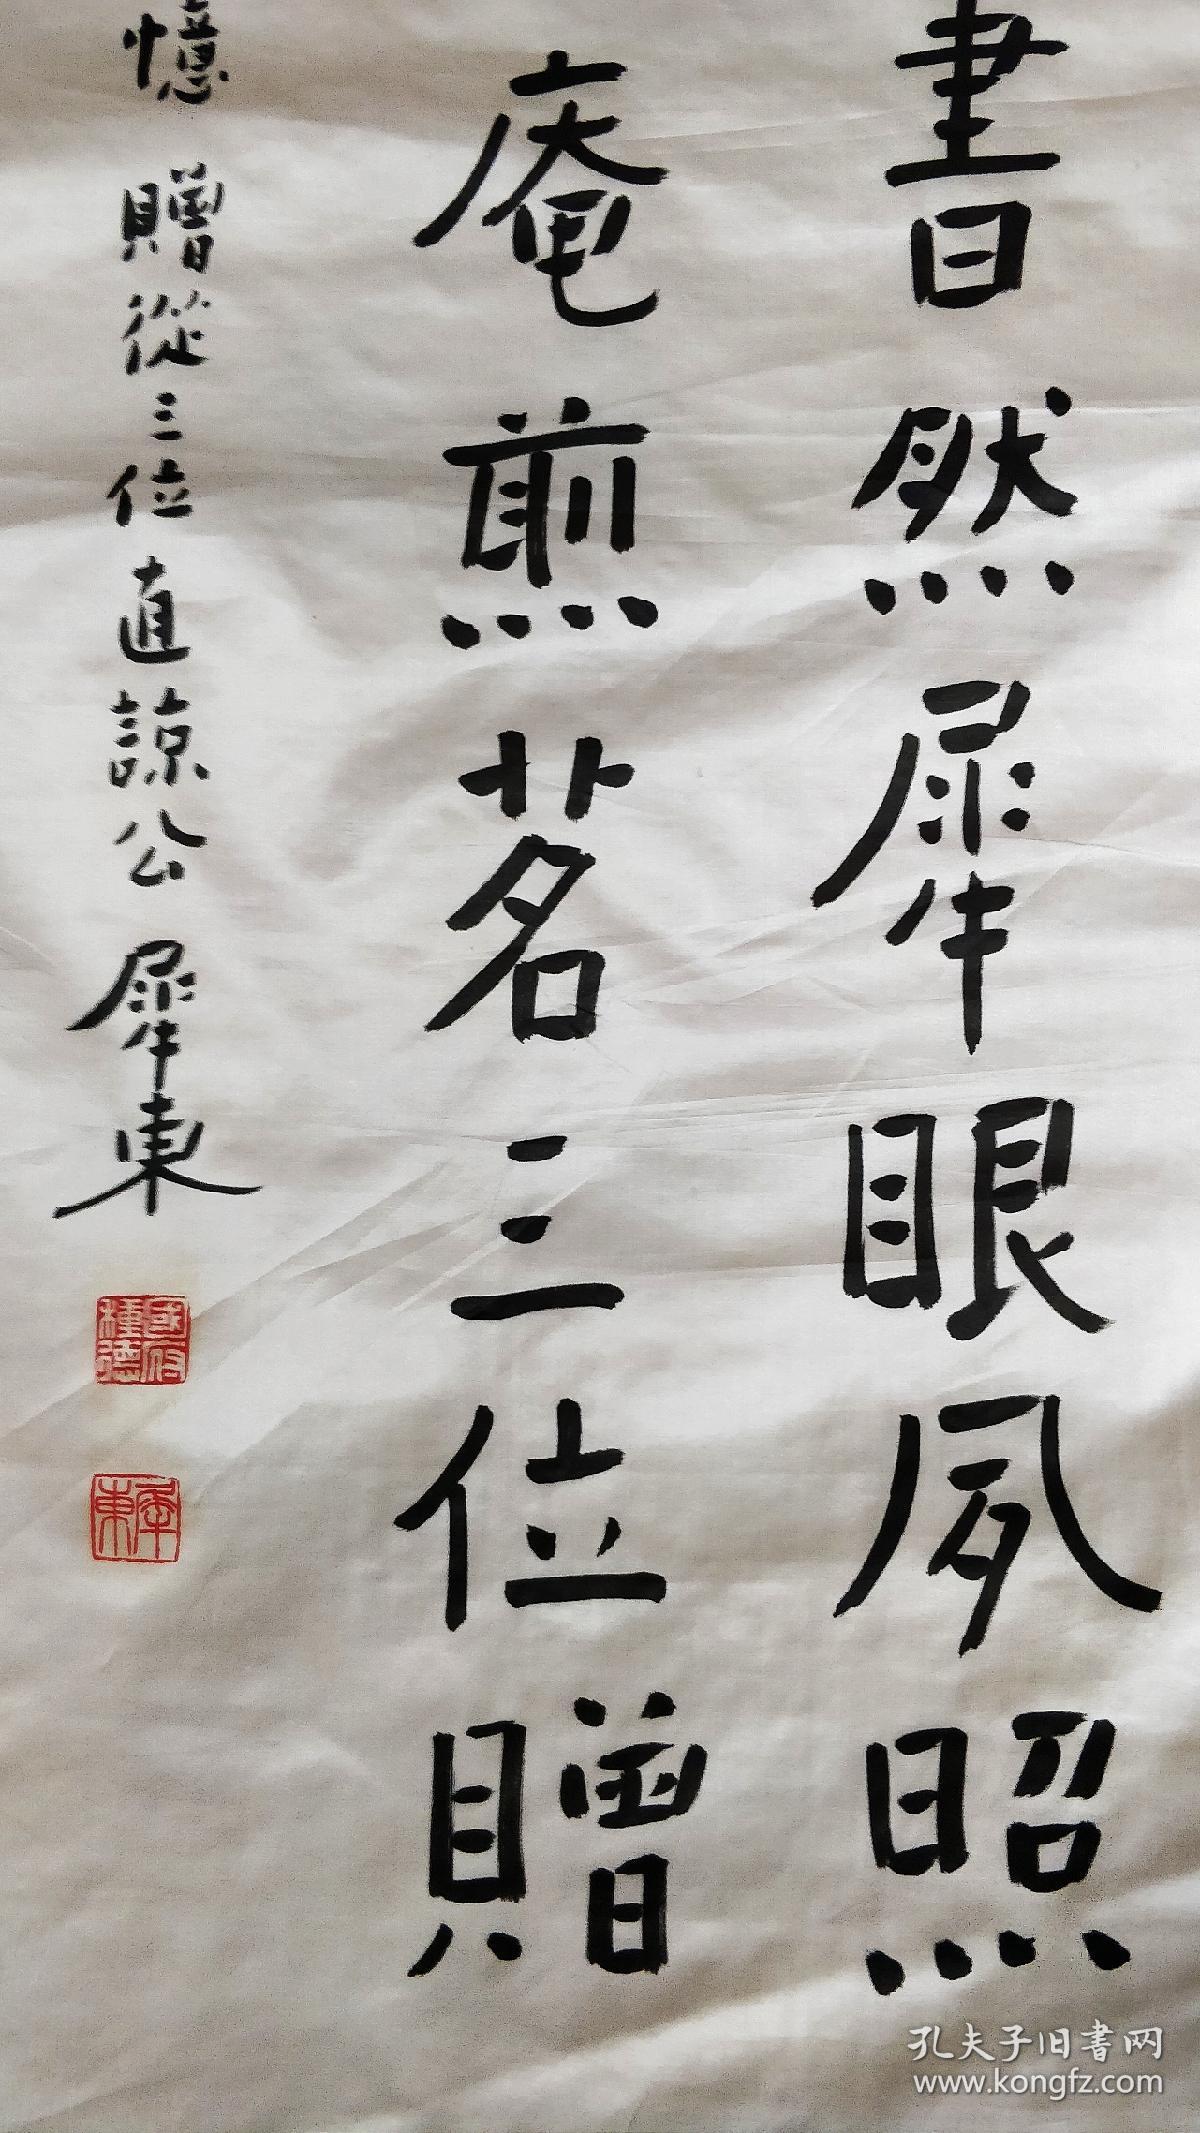 書然犀眼夙照
庵煎茗三位贈
憶 贈從三位直諒公 犀東
國府種德
犀東
孔夫子旧書网
www.kongfz.com